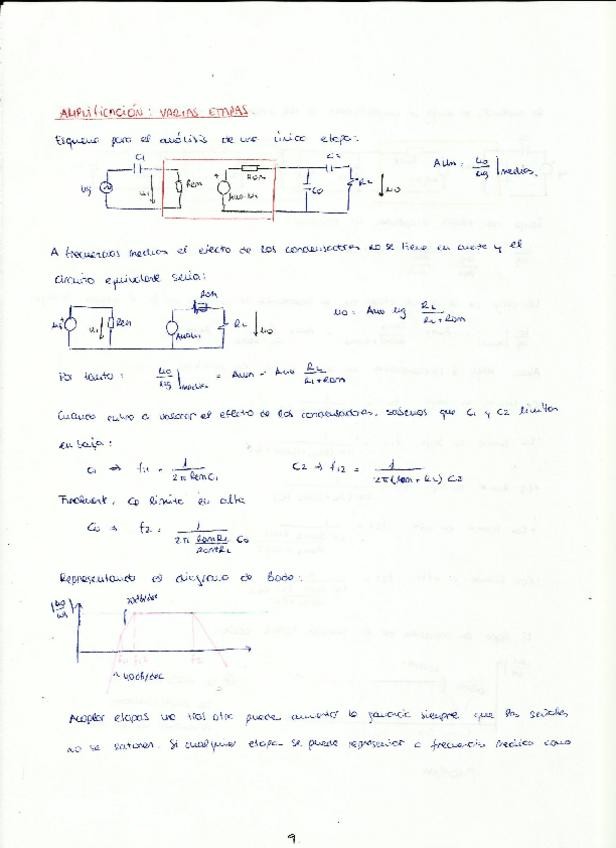 AMPLIFICACIÓN: VARIAS ETAPAS
Esquema para el análisis de una única etapa:
C1
C2
ug
u1
Rem
Rom
Co
RL
uo
Aum = uo/ug | medias.
A frecuencias medias el efecto de los condensadores no se tiene en cuenta y el
circuito equivalente sería:
Rom
ug
u1
Rem
RL
uo
uo = Auo ug RL/(RL+Rom)
Por tanto: uo/ug | medias = Aum = Auo RL/(RL+Rom)
Cuando entro a valorar el efecto de los condensadores, sabemos que C1 y C2 limitan
en baja:
C1 ⇒ f11 = 1/(2π Rem C1)
C2 ⇒ f12 = 1/(2π(Rom+RL) C2)
Finalment, Co limita en alta
Co ⇒ f2 = 1/(2π (Rom RL)/(Rom+RL) Co)
Representando el diagrama de Bode:
|uo/ug|
20db/dec
f11 f12 f2
~40db/dec
Acoplar etapas una tras otra puede aumentar la ganancia siempre que las señales
no se saturen. Si cualquier etapa se puede representar a frecuencias medias como
9